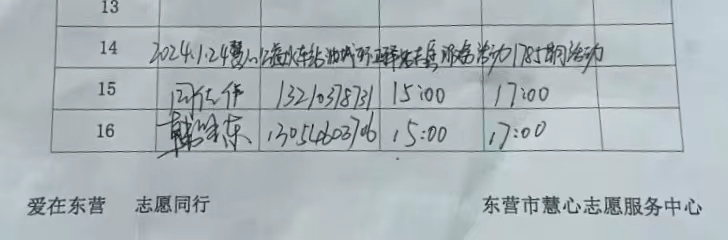 13
14 2024.1.24慧心 火车站 志愿服务活动1785期活动
15 13210378731 15:00 17:00
16 韩 东 13054603706 15:00 17:00
爱在东营 志愿同行 东营市慧心志愿服务中心